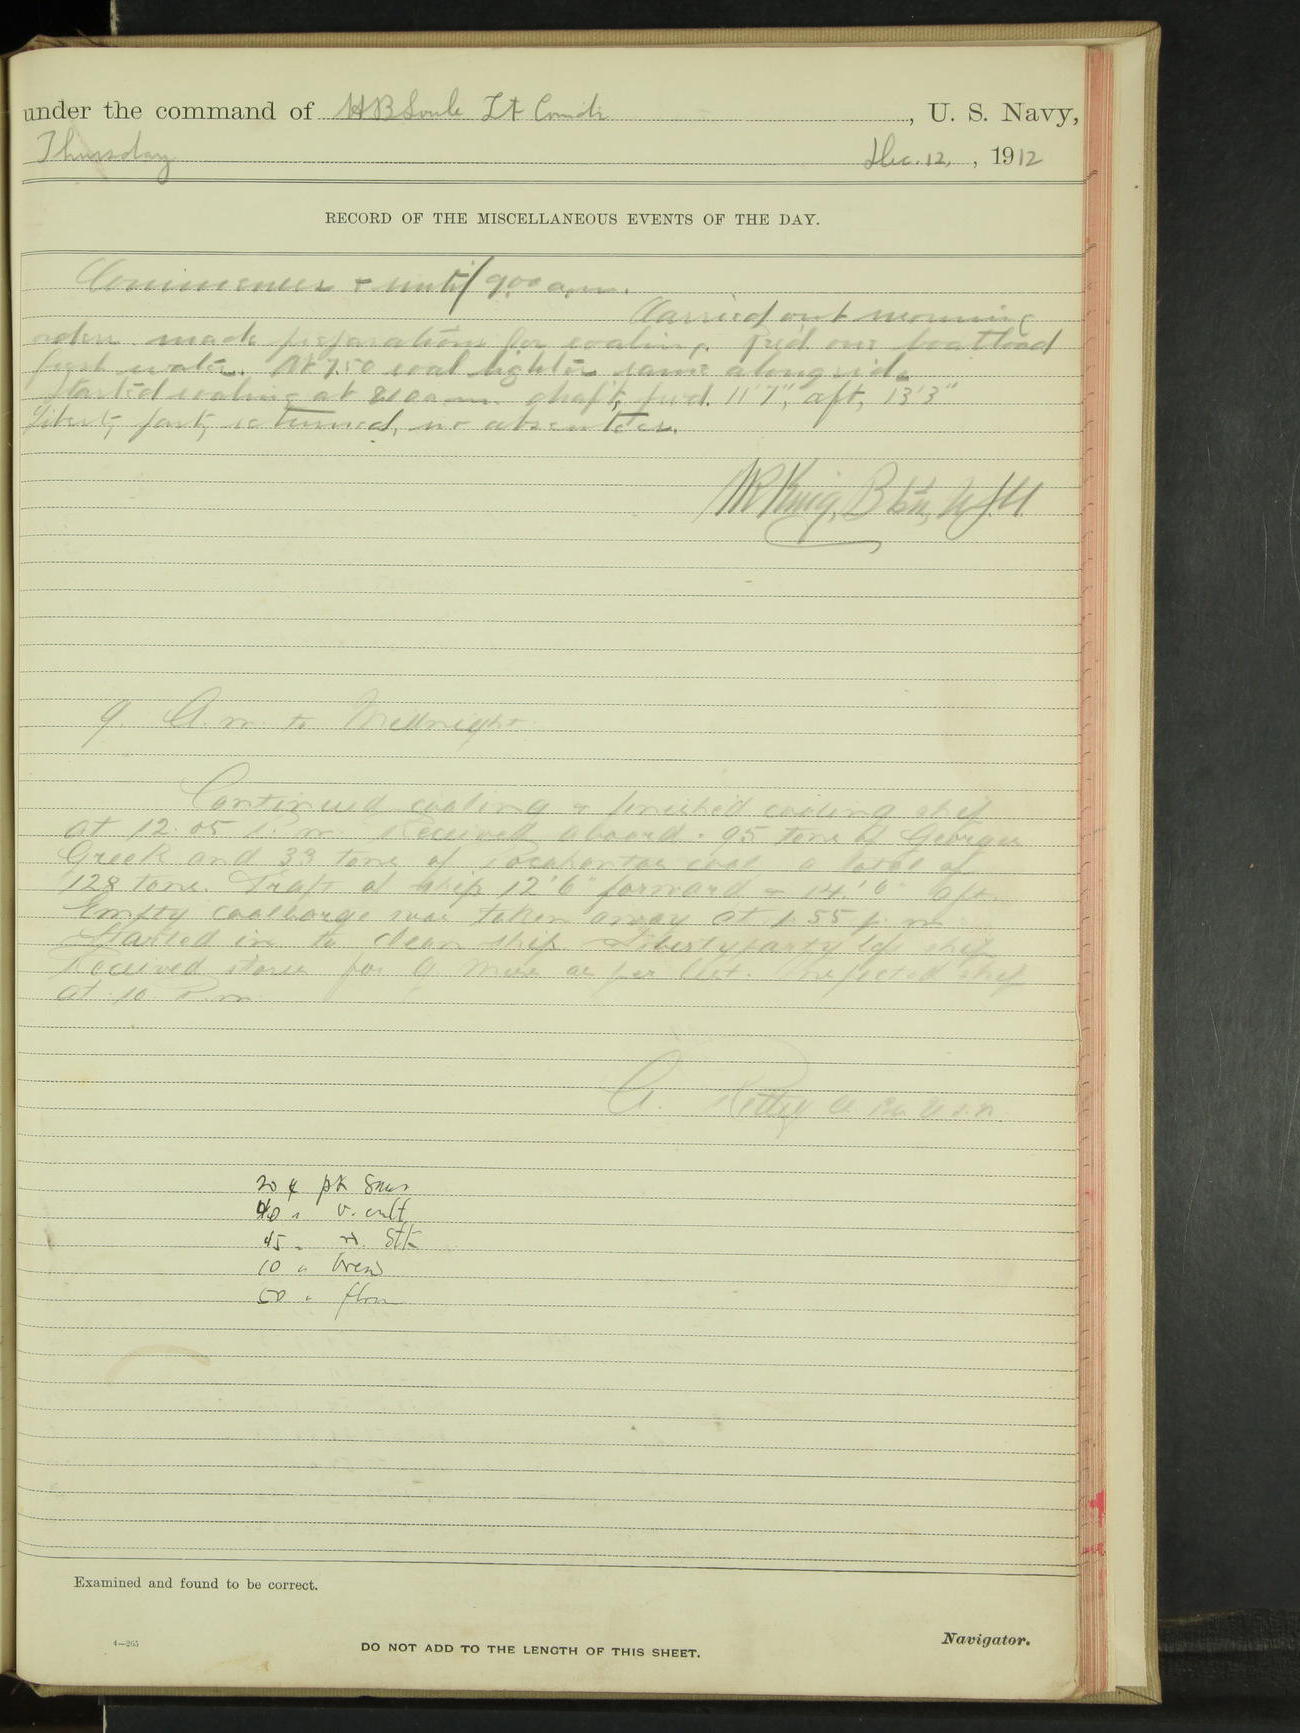 under the command of H B Soule Lt Comdr , U. S. Navy,
Thursday Dec. 12, , 1912
RECORD OF THE MISCELLANEOUS EVENTS OF THE DAY.
Commences & until 9:00 a.m.
Carried out morning
orders made preparations for coaling. Rec'd one boatload
fresh water. At 7.50 coal lighter came alongside
Started coaling at 8:10 a.m. draft, fwd. 11'7", aft, 13'3"
Liberty party returned, no absentees.
W R King, Btsn, U.S.N.
9 A.m. to Midnight
Continued coaling & finished coaling ship
at 12.05 P.m. Received aboard 95 tons of Georges
Creek and 33 tons of Pocahontas coal a total of
128 tons. Draft of ship 12'6" forward & 14'6" aft.
Empty coalbarge was taken away at 1.55 p.m
Started in to clean ship. Liberty party left ship
Received stores for G. Mess as per list. Inspected ship
at 10 P.m
A. U.S.N.
20 # pk
40 " v. cutt
45 " Stk
10 "
50 "
Examined and found to be correct.
4—265
DO NOT ADD TO THE LENGTH OF THIS SHEET.
Navigator.